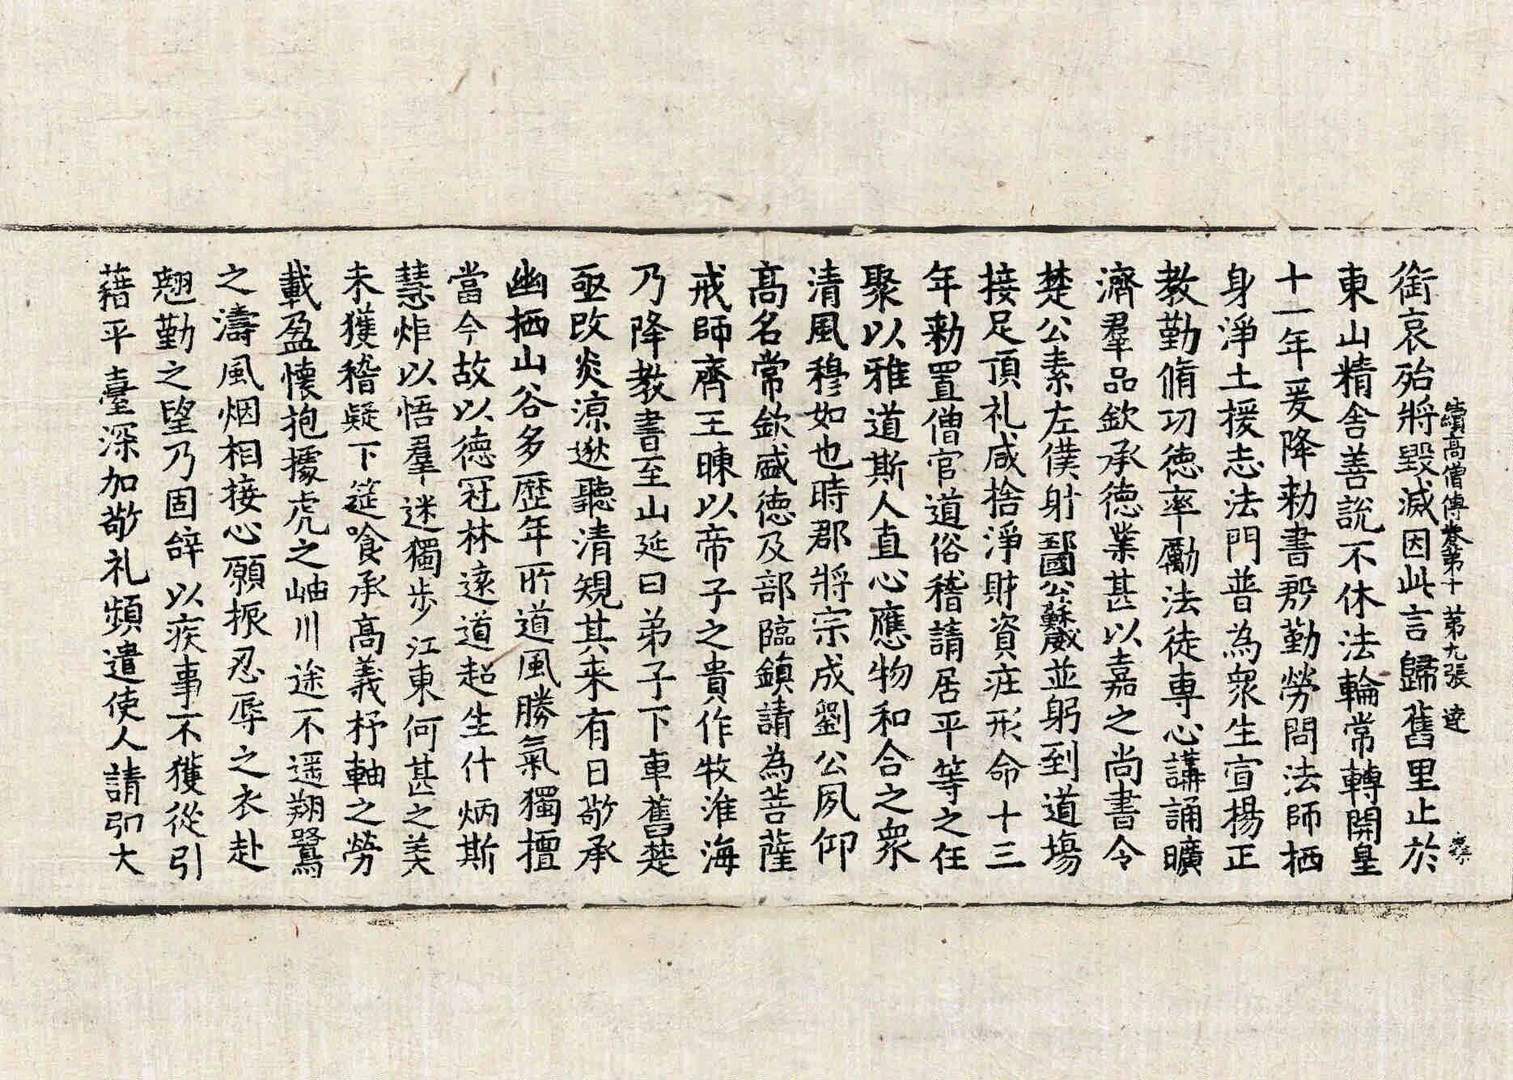 續高僧傳卷第十 第九張 達
銜哀殆將毀滅因此言歸舊里止於
東山精舍善說不休法輪常轉開皇
十一年爰降勑書慇勤勞問法師栖
身淨土援志法門普為衆生宣揚正
教勤脩功德率勵法徒專心講誦曠
濟羣品欽承德業甚以嘉之尚書令
楚公素左僕射邳國公蘇威並躬到道場
接足頂礼咸捨淨財資莊形命十三
年勑置僧官道俗稽請居平等之任
聚以雅道斯人直心應物和合之衆
清風穆如也時郡將宗成劉公夙仰
高名常欽盛德及部臨鎮請為菩薩
戒師齊王暕以帝子之貴作牧淮海
乃降教書至山延曰弟子下車舊楚
亟改炎涼逖聽清規其来有日敬承
幽栖山谷多歷年所道風勝氣獨擅
當今故以德冠林遠道超生什炳斯
慧炸以悟羣迷獨步江東何甚之美
未獲稽疑下筵飡承高義杼軸之勞
載盈懷抱據虎之岫川途不遥翔鷺
之濤風烟相接心願振忍辱之衣赴
翹勤之望乃固辞以疾事不獲從引
藉平臺深加敬礼頻遣使人請卬大